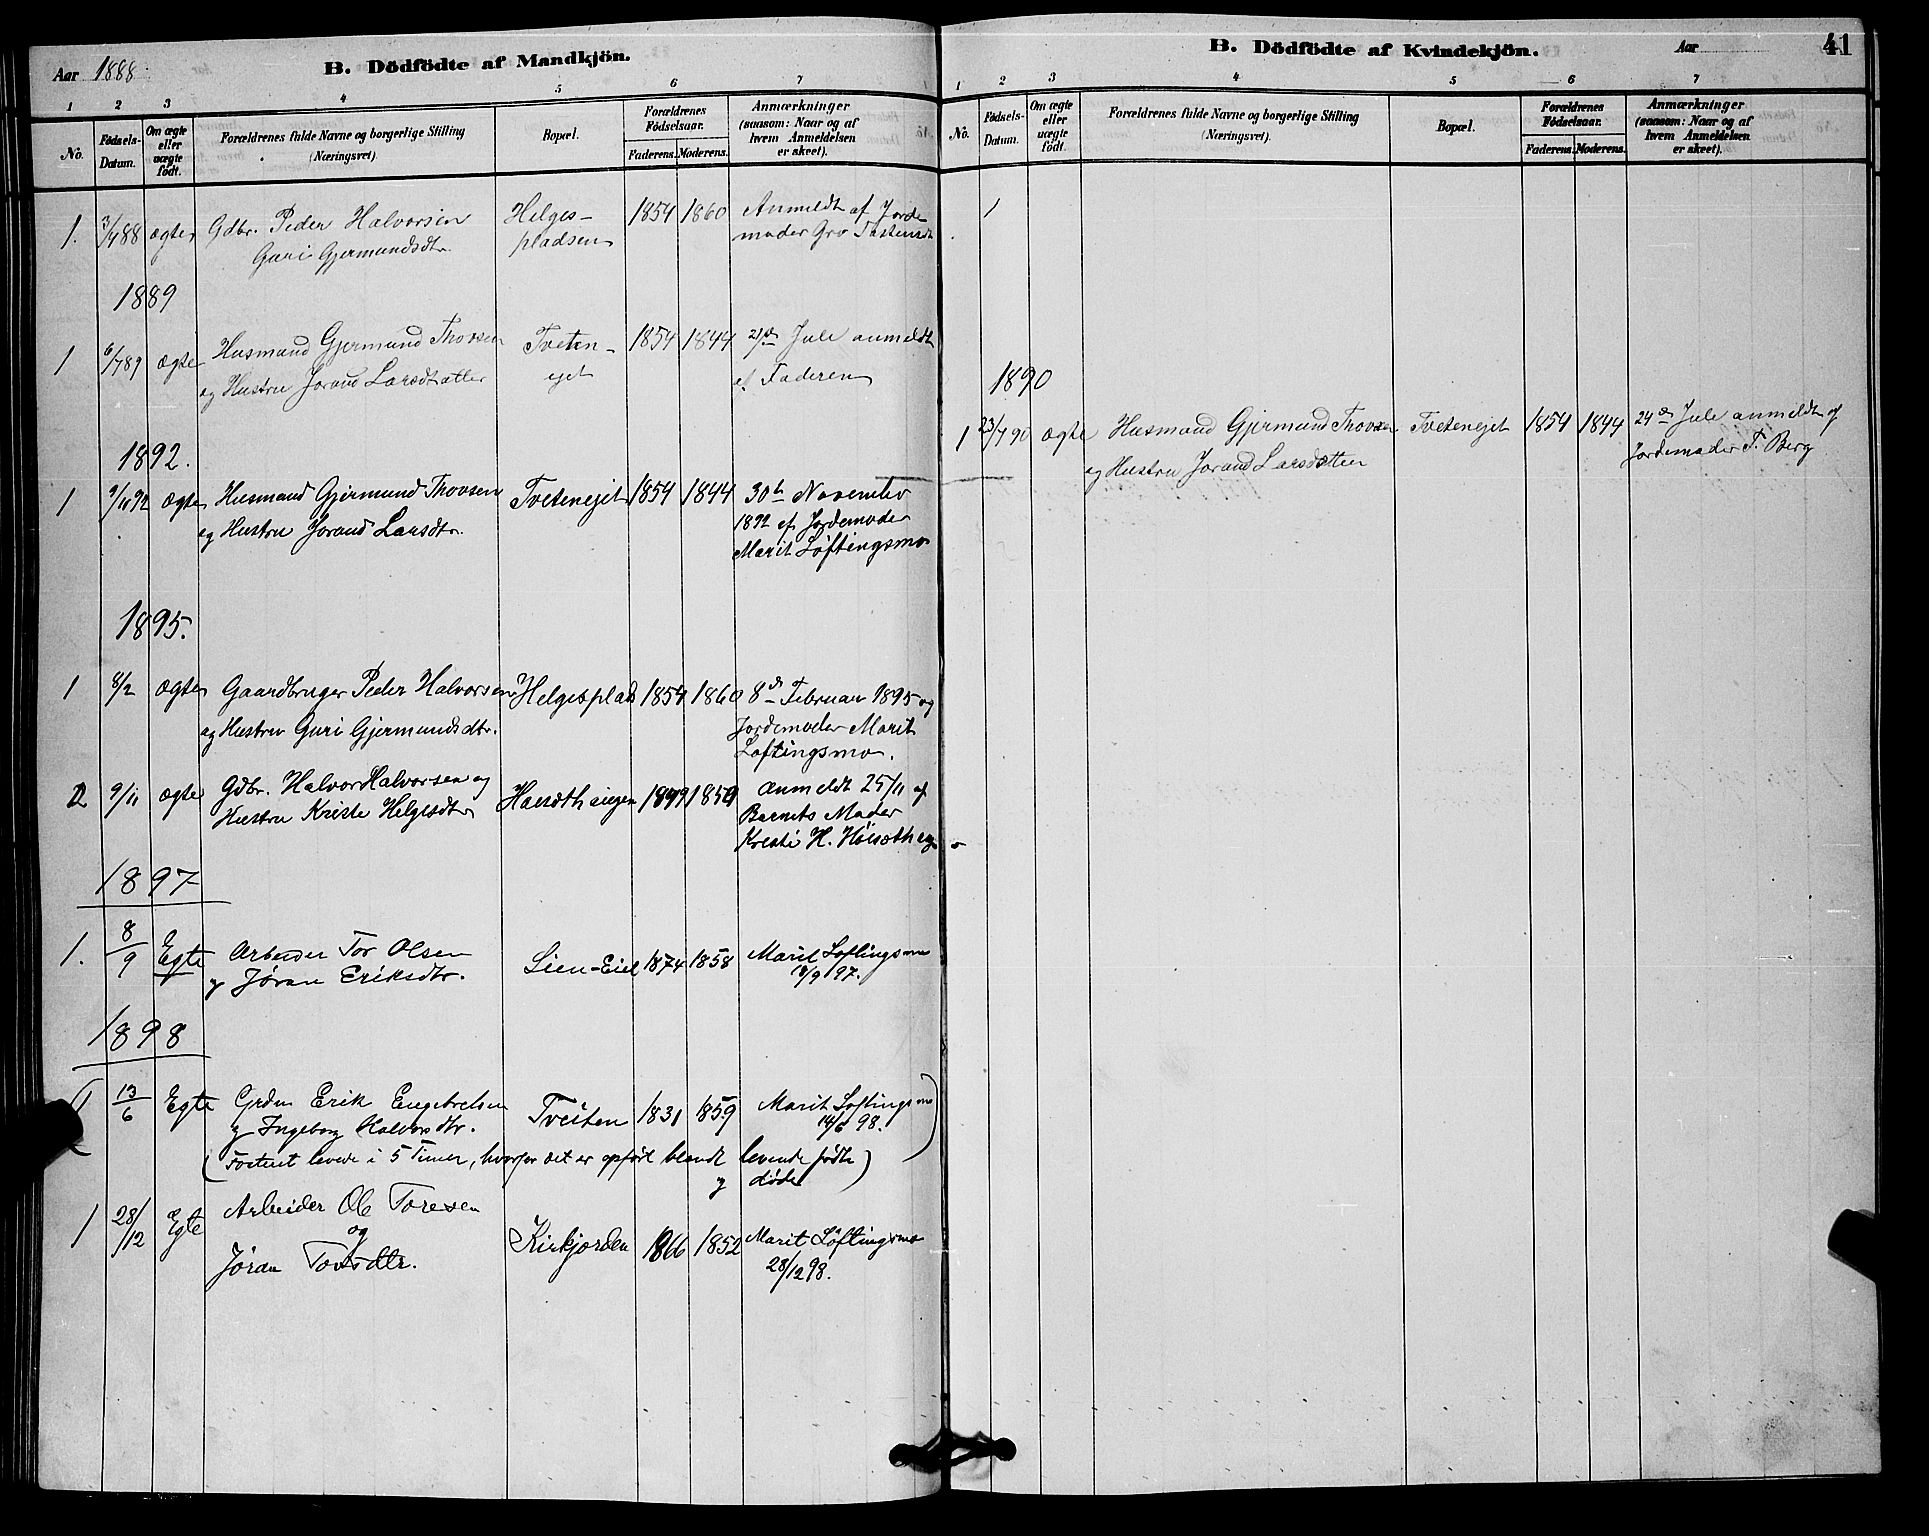 Aar 1888.
B. Dödfödte af Mandkjön.
1 2 3 4 5 6 7
No.
Födsels-Datum.
Om ægte eller uægte födt.
Forældrenes fulde Navne og borgerlige Stilling
(Næringsvei).
Bopæl.
Forældrenes Födselsaar.
Faderens. Moderens.
Anmærkninger
(saasom: Naar og af
hvem Anmeldelsen
er skeet).
1. 3/7 88 ægte Gdbr. Peder Halvorsen Helges- 1854 1860 Anmeldt af Jorde
Guri Gjermundsdtr. pladsen moder Gro
1889
1 6/7 89 ægte Husmand Gjermund Thovsen Tveten- 1854 1844 Jule anmeldt
og Hustru Jorand Larsdatter ejet af Faderen
1892.
1 9/11 92 ægte Husmand Gjermund Thovsen Tvetenejet 1854 1844 30te November
og Hustru Jorand Larsdtr. 1892 af Jordemoder
Marit Løftingsmo
1895.
1 8/2 ægte Gaardbruger Peder Halvorsen Helgesplads 1854 1860 8de Februar 1895 og
og Hustru Guri Gjermundsdtr. Jordemoder Marit
Løftingsmo.
2 9/11 ægte Gdbr. Halvor Halvorsen og 1859 anmeldt 25/11 af
Hustru Kriste Helgesdtr Barnets Moder
Kristi H.
1897
1. 8/9 Egte Arbeider Tor Olsen Lien-Eiet 1874 1858 Marit Løftingsmo
og Jøran Eriksdtr. 18/9 97.
1898
1 13/6 Egte Grdm Erik Engebretsen Tveiten 1831 1859 Marit Løftingsmo
og Ingeborg Halvorsdtr. 14/6 98.
(Fosteret levede i 5 Timer, hvorfor det er opført blandt levende fødte
og døde)
1 28/12 Egte Arbeider Ole Toresen
og
Jøran Tovsdtr. Kirkjorden 1866 1852 Marit Løftingsmo
28/12 98.
B. Dödfödte af Kvindekjön.
Aar
41
1 2 3 4 5 6 7
No.
Födsels-Datum.
Om ægte eller uægte födt.
Forældrenes fulde Navne og borgerlige Stilling
(Næringsvei).
Bopæl.
Forældrenes Födselsaar.
Faderens. Moderens.
Anmærkninger
(saasom: Naar og af
hvem Anmeldelsen
er skeet).
1890
1 23/7 90 ægte Husmand Gjermund Thovsen Tvetenejet 1854 1844 24de Jule anmeldt af
og Hustru Jorand Larsdatter Jordemoder T. Berg